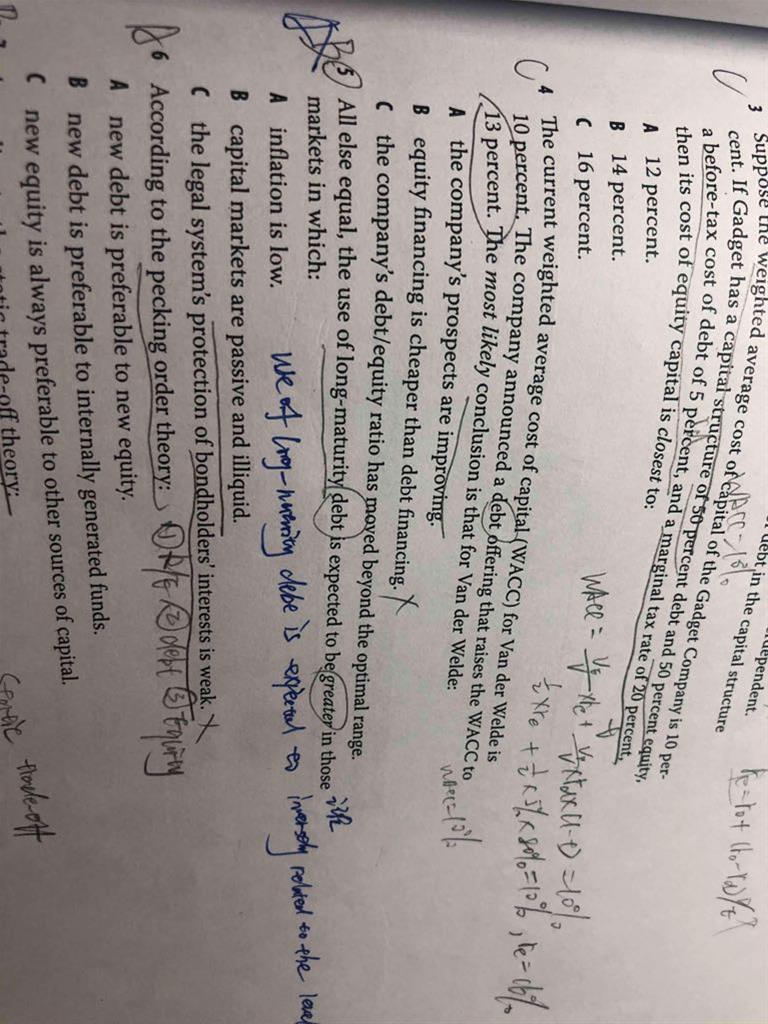 debt in the capital structure
dependent.
3 Suppose the weighted average cost of capital of the Gadget Company is 10 per-
cent. If Gadget has a capital structure of 50 percent debt and 50 percent equity,
a before-tax cost of debt of 5 percent, and a marginal tax rate of 20 percent,
then its cost of equity capital is closest to:
A 12 percent.
B 14 percent.
C 16 percent.
C
WACC = 10%
½ × re + ½ × 5% × 80% = 10%, re = 16%
C
4 The current weighted average cost of capital (WACC) for Van der Welde is
10 percent. The company announced a debt offering that raises the WACC to
13 percent. The most likely conclusion is that for Van der Welde:
WACC = 10%
A the company's prospects are improving.
B equity financing is cheaper than debt financing. X
C the company's debt/equity ratio has moved beyond the optimal range.
B
5 All else equal, the use of long-maturity debt is expected to be greater in those
markets in which:
A inflation is low.
use of long-maturity debt is expected to inversely related to the level
B capital markets are passive and illiquid.
C the legal system's protection of bondholders' interests is weak. X
A
6 According to the pecking order theory:
① R/E ② debt ③ Equity
A new debt is preferable to new equity.
B new debt is preferable to internally generated funds.
C new equity is always preferable to other sources of capital.
static trade-off theory:
trade-off